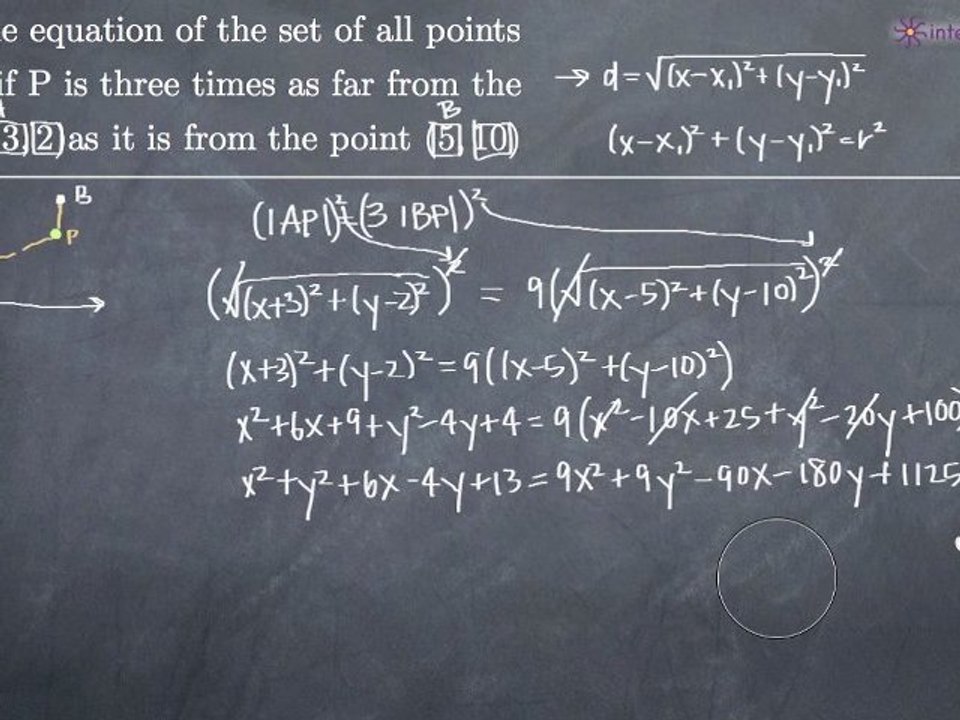 e equation of the set of all points
if P is three times as far from the
3, 2) as it is from the point (5, 10)
B
inte
→ d = √(x-x₁)² + (y-y₁)²
(x-x₁)² + (y-y₁)² = r²
B
P
(|AP|)² = (3 |BP|)²
(√(x+3)² + (y-2)²)² = 9(√(x-5)² + (y-10)²)²
(x+3)² + (y-2)² = 9((x-5)² + (y-10)²)
x² + 6x + 9 + y² - 4y + 4 = 9(x² - 10x + 25 + y² - 20y + 100)
x² + y² + 6x - 4y + 13 = 9x² + 9y² - 90x - 180y + 1125